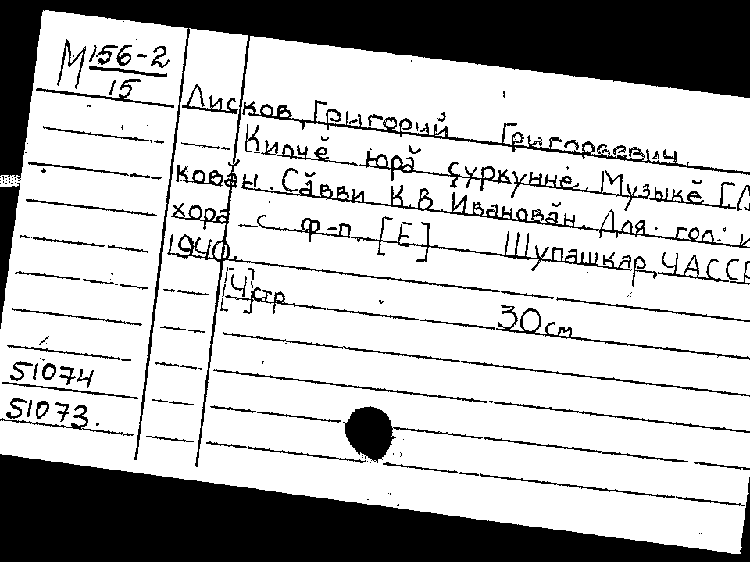 М 156-2
15
Лисков, Григорий Григорьевич.
Кипчĕ юрă çуркунне. Музыкĕ Г.Л
кован. Сăвви К.В. Иванован. Для гол. и
хора с ф-п. [Е] Шупашкар, ЧАССР
1940.
[4] стр. 30 см
51074
51073.